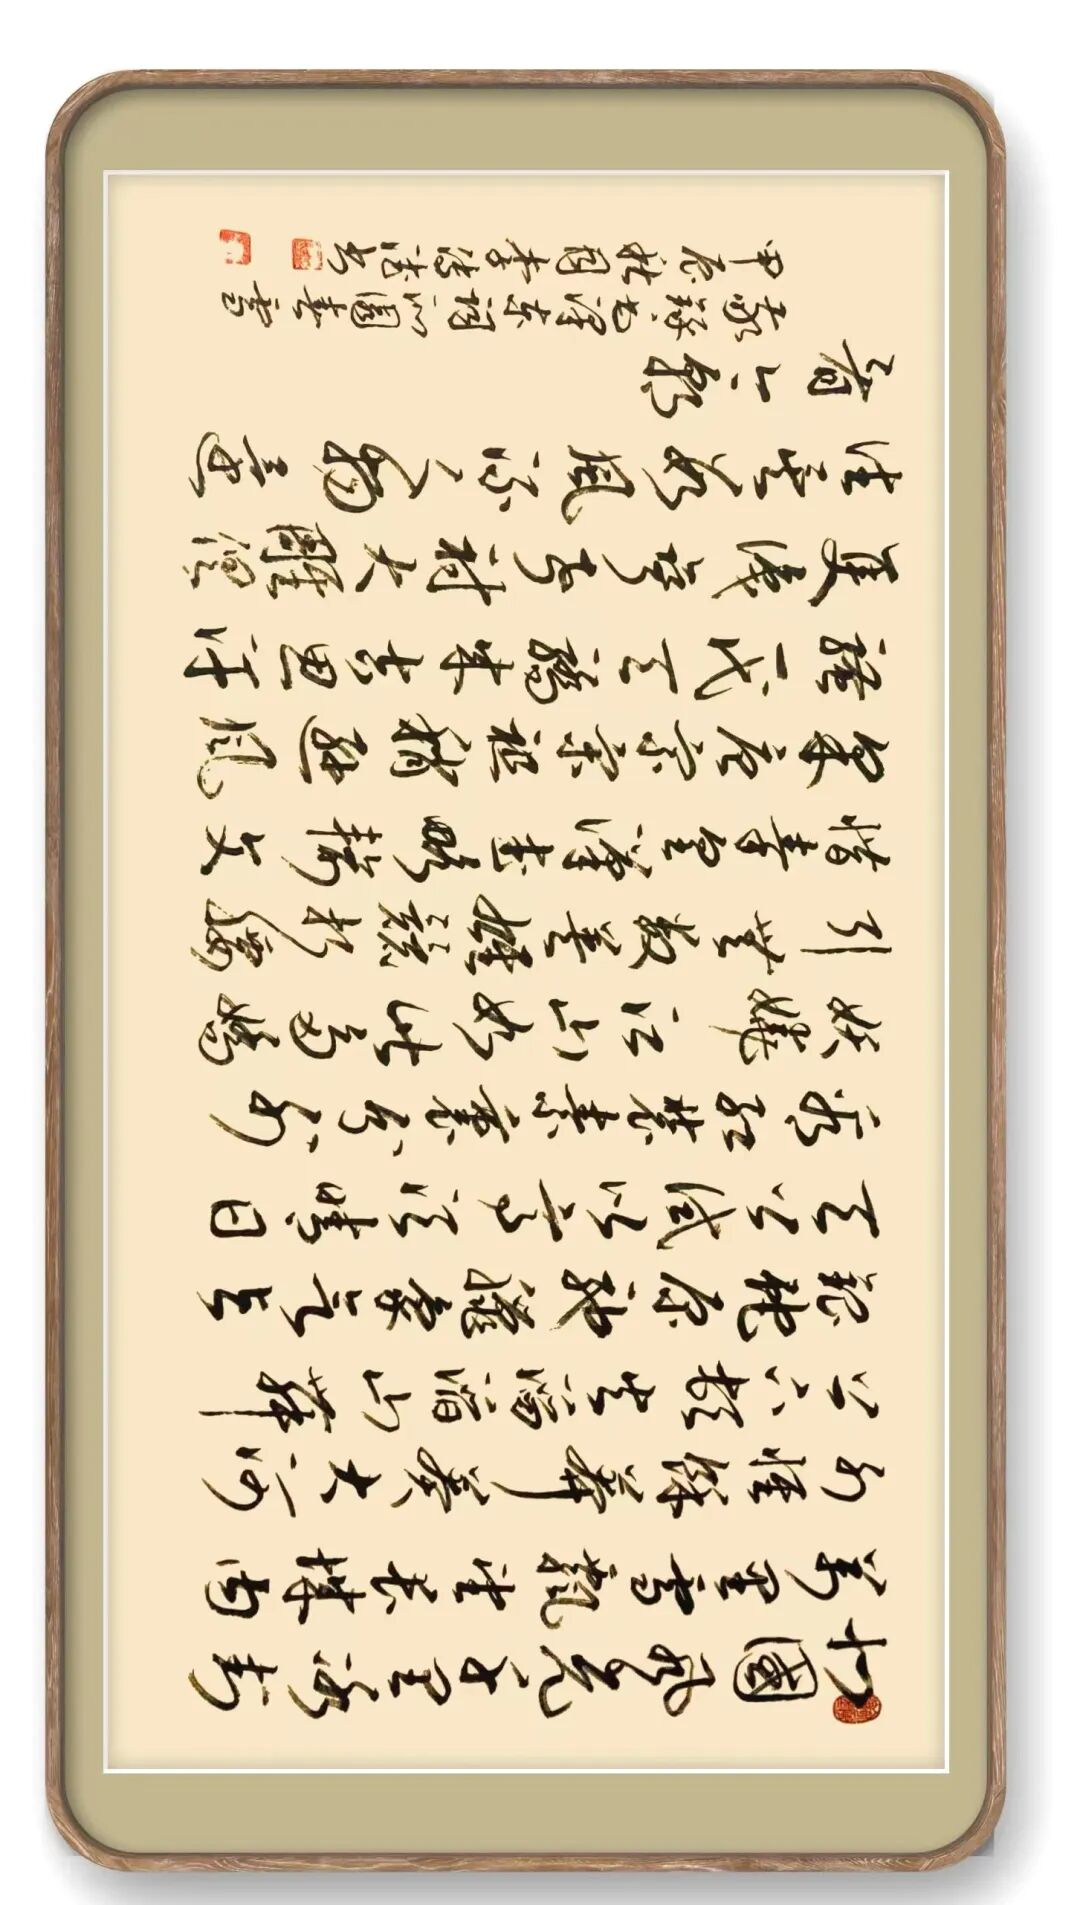 北國風光千里冰封
萬里雪飄望長城内
外惟餘莽莽大河
上下頓失滔滔山舞
銀蛇原馳蠟象欲与
天公試比高須晴日
看紅裝素裹分外
妖嬈江山如此多嬌
引無數英雄競折腰
惜秦皇漢武略輸文
采唐宗宋祖稍遜風
騷一代天驕成吉思汗
隻識彎弓射大雕俱
往矣數風流人物還
看今朝
敬錄毛澤東詞沁園春雪
甲辰秋月李书